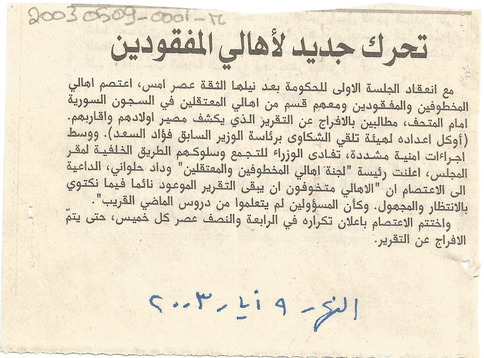 20030509-0001-
تحرك جديد لأهالي المفقودين
مع انعقاد الجلسة الاولى للحكومة بعد نيلها الثقة عصر امس، اعتصم اهالي
المخطوفين والمفقودين ومعهم قسم من اهالي المعتقلين في السجون السورية
امام المتحف، مطالبين بالافراج عن التقرير الذي يكشف مصير اولادهم واقاربهم.
(أوكل اعداده لهيئة تلقي الشكاوى برئاسة الوزير السابق فؤاد السعد). ووسط
اجراءات امنية مشددة، تفادى الوزراء للتجمع وسلوكهم الطريق الخلفية لمقر
المجلس، اعلنت رئيسة "لجنة اهالي المخطوفين والمعتقلين" وداد حلواني، الداعية
الى الاعتصام ان "الاهالي متخوفون ان يبقى التقرير الموعود نائما فيما نكتوي
بالانتظار والمجهول. وكأن المسؤولين لم يتعلموا من دروس الماضي القريب".
واختتم الاعتصام باعلان تكراره في الرابعة والنصف عصر كل خميس، حتى يتمّ
الافراج عن التقرير.
النهار ٩ أيار ٢٠٠٣